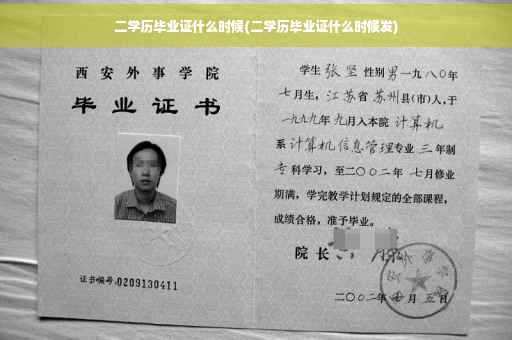 二学历毕业证什么时候(二学历毕业证什么时候发)
西安外事学院
毕业证书
证书编号:0209130411
学生 张坚 性别 男 一九八〇年
七月生, 江苏省 苏州县(市)人,于
一九九九年 九月入本院 计算机
系 计算机信息管理专业 三 年制
专 科学习,至二〇〇二年 七月修业
期满,学完教学计划规定的全部课程,
成绩合格,准予毕业。
院 长
二〇〇二年 月 五日